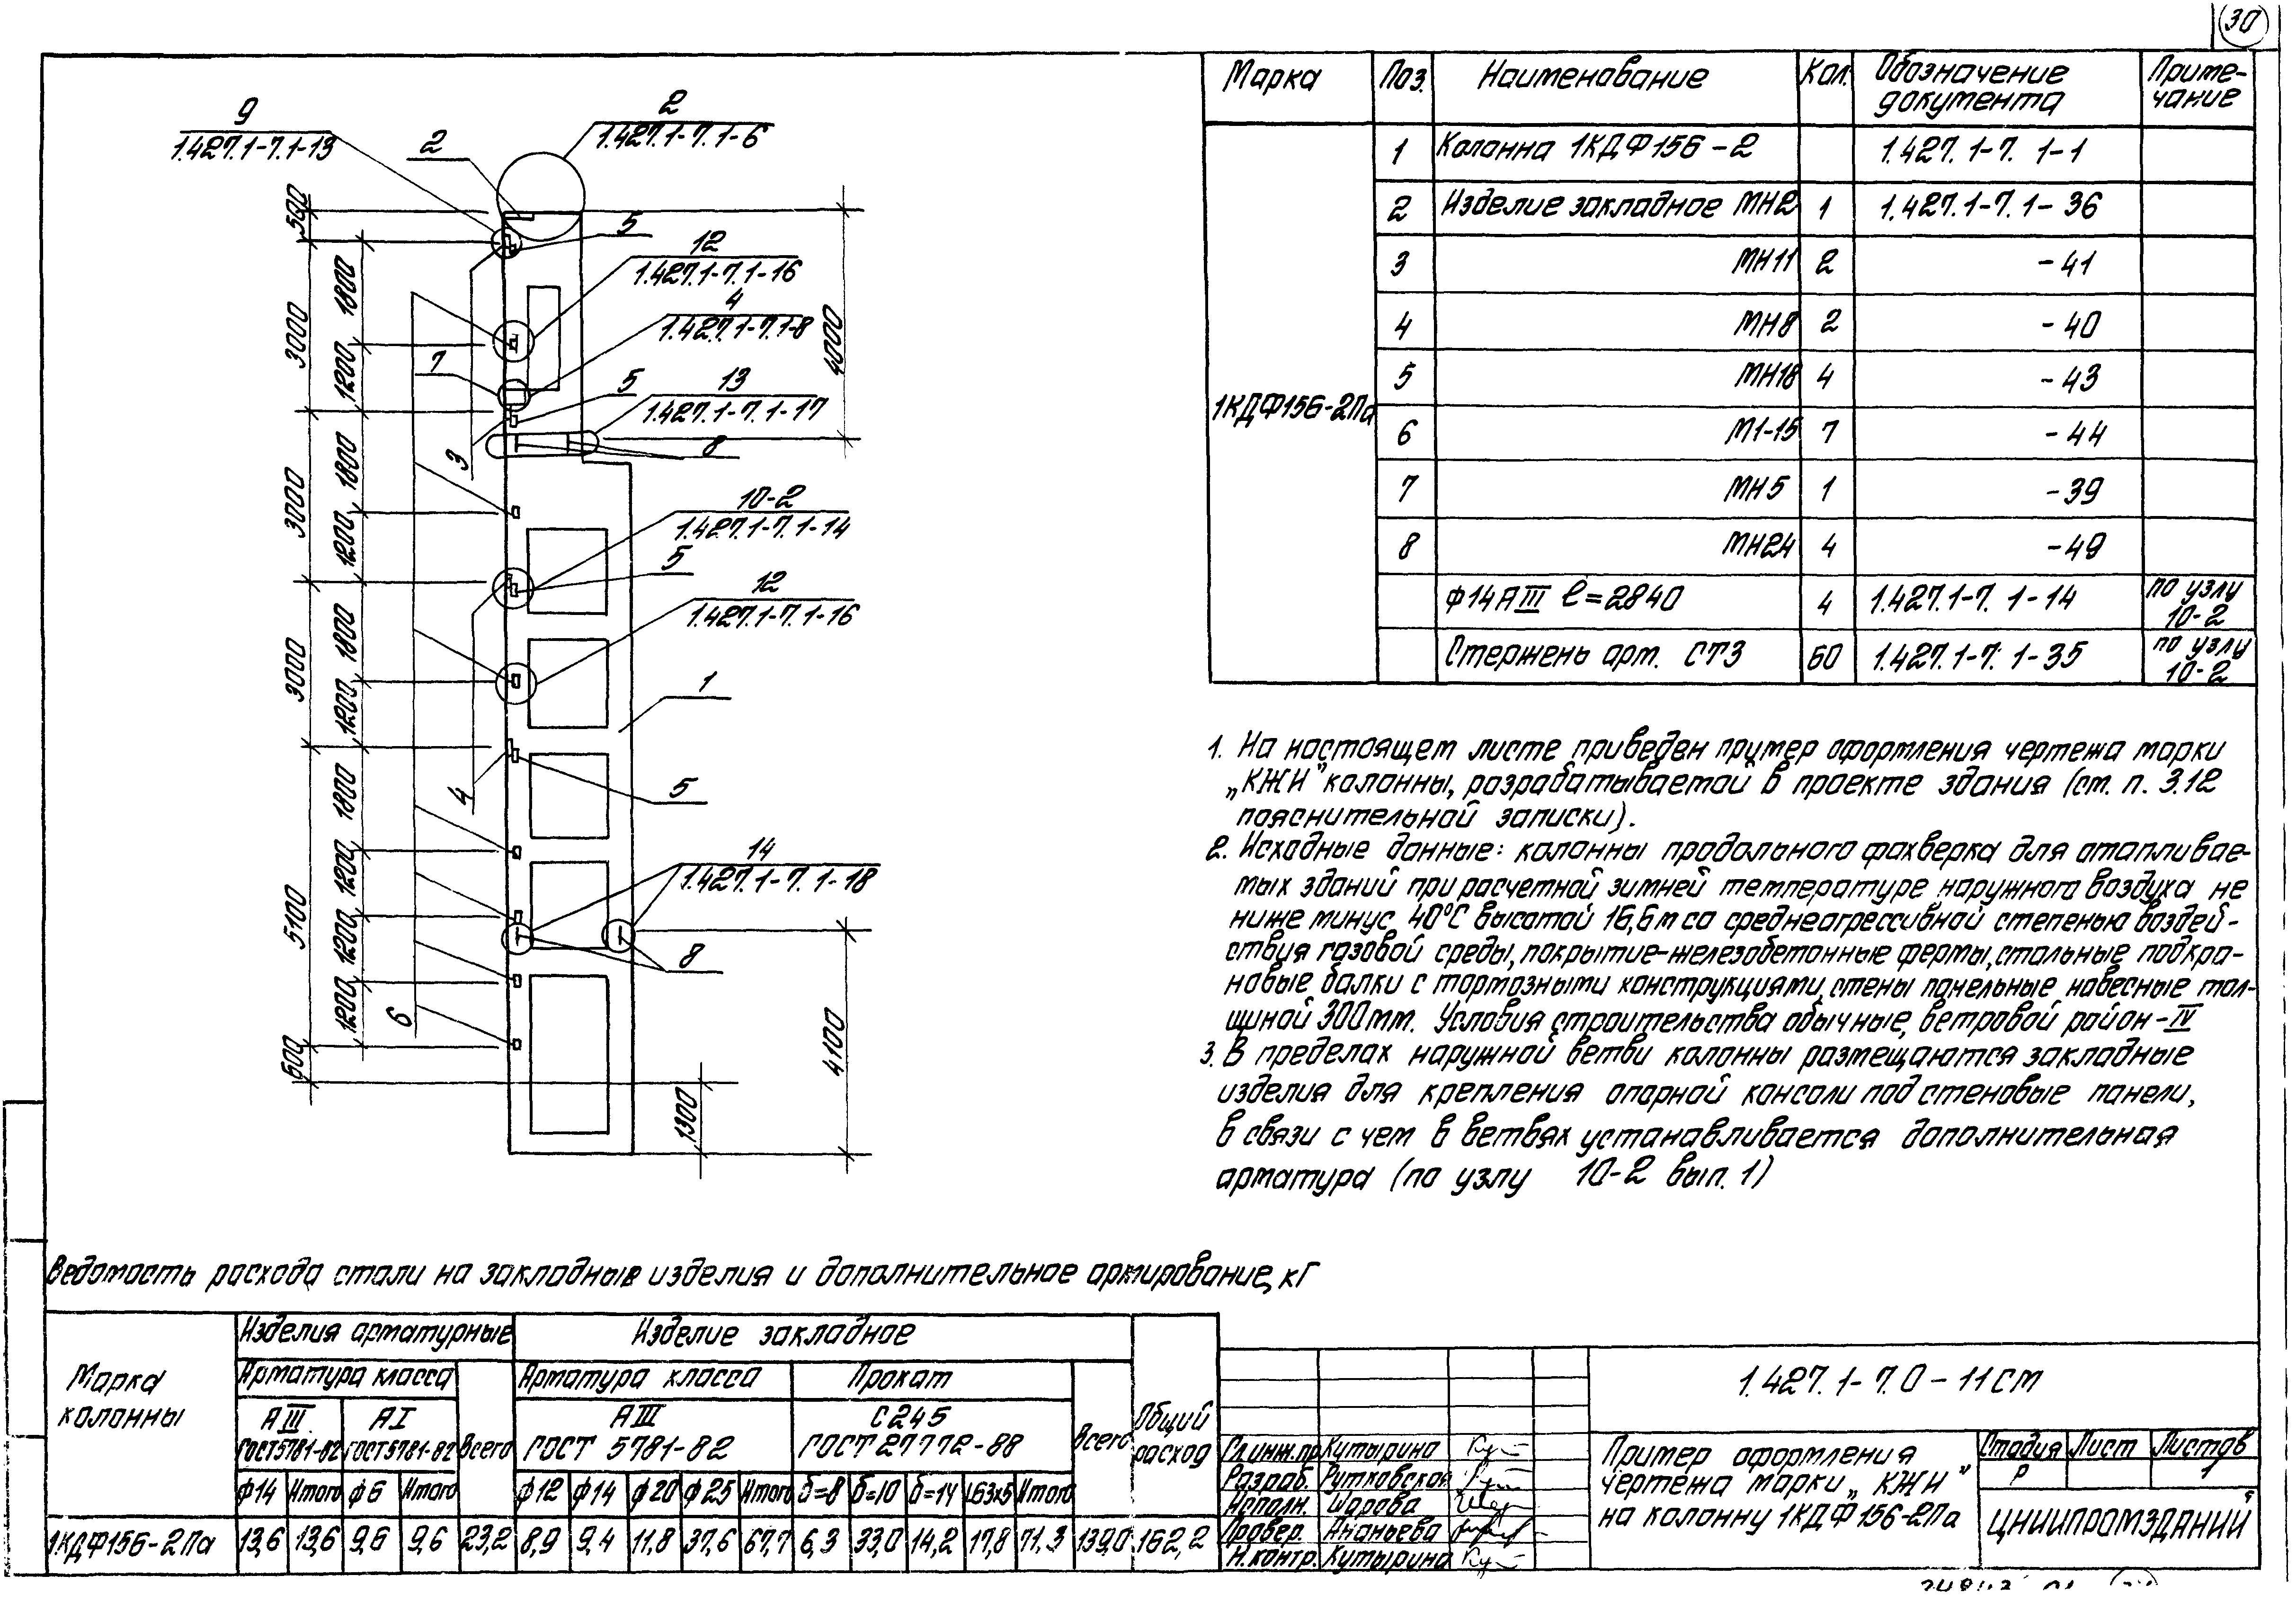 30
9
1.427.1-7.1-13
2
2
1.427.1-7.1-6
5
12
1.427.1-7.1-16
4
1.427.1-7.1-8
7
5
13
1.427.1-7.1-17
8
3
10-2
1.427.1-7.1-14
5
12
1.427.1-7.1-16
1
4
5
14
1.427.1-7.1-18
8
6
500
3000
3000
3000
5100
600
1800
1200
1800
1200
1800
1200
1800
1200
1200
1200
4000
4100
1300
Марка Поз. Наименование Кол. Обозначение документа Приме-чание
1КДФ156-2Па
1 Колонна 1КДФ156-2 1.427.1-7. 1-1
2 Изделие закладное МН2 1 1.427.1-7.1-36
3 МН11 2 -41
4 МН8 2 -40
5 МН18 4 -43
6 М1-15 7 -44
7 МН5 1 -39
8 МН24 4 -49
ф14АIII ℓ=2840 4 1.427.1-7. 1-14 по узлу 10-2
Стержень арт. СТ3 60 1.427.1-7. 1-35 по узлу 10-2
1. На настоящем листе приведен пример оформления чертежа марки
„КЖИ" колонны, разрабатываемой в проекте здания (см. п. 3.12
пояснительной записки).
2. Исходные данные: колонны продольного фахверка для отапливае-
мых зданий при расчетной зимней температуре наружного воздуха не
ниже минус 40°С высотой 16,6м со среднеагрессивной степенью воздей-
ствия газовой среды, покрытие-железобетонные фермы, стальные подкра-
новые балки с тормозными конструкциями, стены панельные навесные тол-
щиной 300мм. Условия строительства обычные, ветровой район-IV
3. В пределах наружной ветви колонны размещаются закладные
изделия для крепления опорной консоли под стеновые панели,
в связи с чем в ветвях устанавливается дополнительная
арматура (по узлу 10-2 вып. 1)
Ведомость расхода стали на закладные изделия и дополнительное армирование, кг
Марка колонны
Изделия арматурные Изделие закладное Общий расход
Арматура класса Всего Арматура класса Прокат Всего
АIII АI АIII С245
ГОСТ5781-82 ГОСТ5781-82 ГОСТ 5781-82 ГОСТ 27772-88
ф14 Итого ф6 Итого ф12 ф14 ф20 ф25 Итого б=8 б=10 б=14 L63x5 Итого
1КДФ156-2Па 13,6 13,6 9,6 9,6 23,2 8,9 9,4 11,8 37,6 67,7 6,3 33,0 14,2 17,8 71,3 139,0 162,2
1.427.1-7.0-11СМ
Гл.инж.пр. Кутырина
Разраб. Рутковская
Исполн. Шарова
Провер. Ананьева
Н.контр. Кутырина
Пример оформления
чертежа марки „КЖИ"
на колонну 1КДФ156-2Па
Стадия Лист Листов
Р 1
ЦНИИПРОМЗДАНИЙ